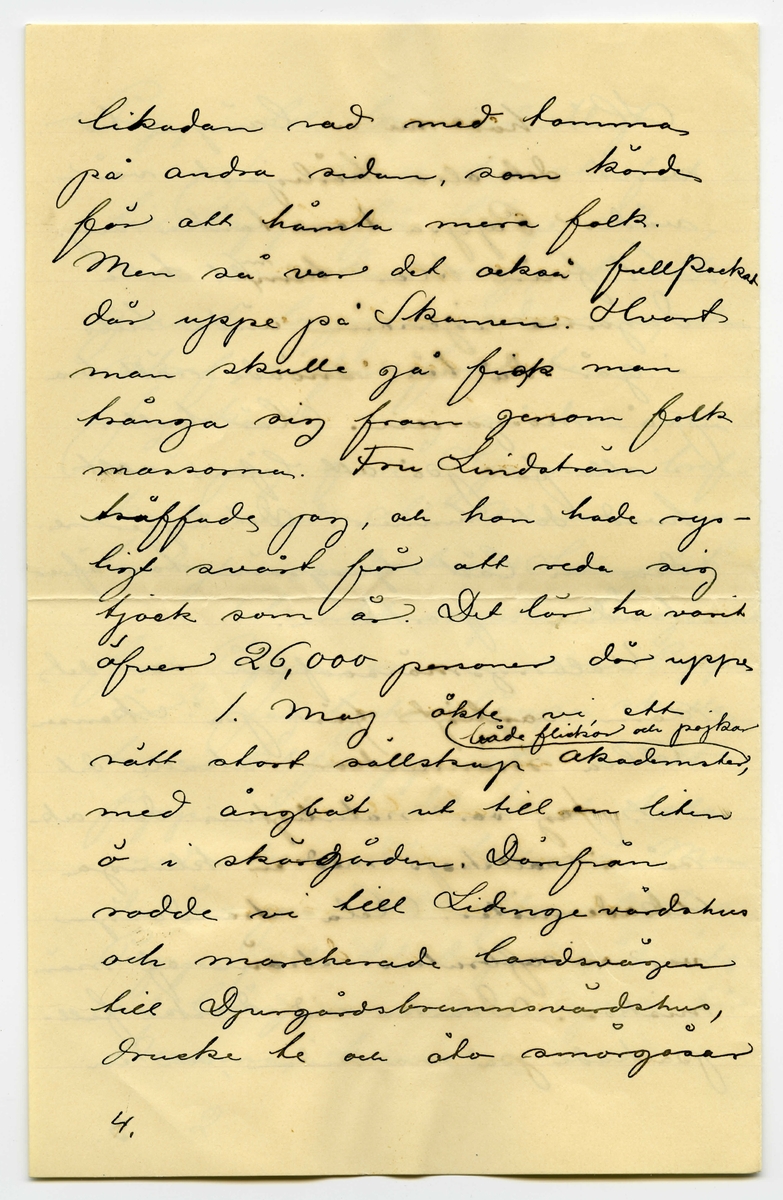 likadan rad med tomma
på andra sidan, som körde
för att hämta mera folk.
Men så var det också fullpackat
där uppe på Skansen. Hvart
man skulle gå fick man
tränga sig fram genom folk
massorna. Fru Lindström
träffade jag, och hon hade rys-
ligt svårt för att reda sig
tjock som är. Det lär ha varit
öfver 26,000 personer där uppe
1. Maj åkte vi, ett
både flickor och pojkar
rätt stort sällskap akademster,
med ångbåt ut till en liten
ö i skärgården. Därifrån
rodde vi till Lidinge värdshus
och marcherade landsvägen
till Djurgårdsbrunnsvärdshus,
drucke te och åto smörgåsar
4.